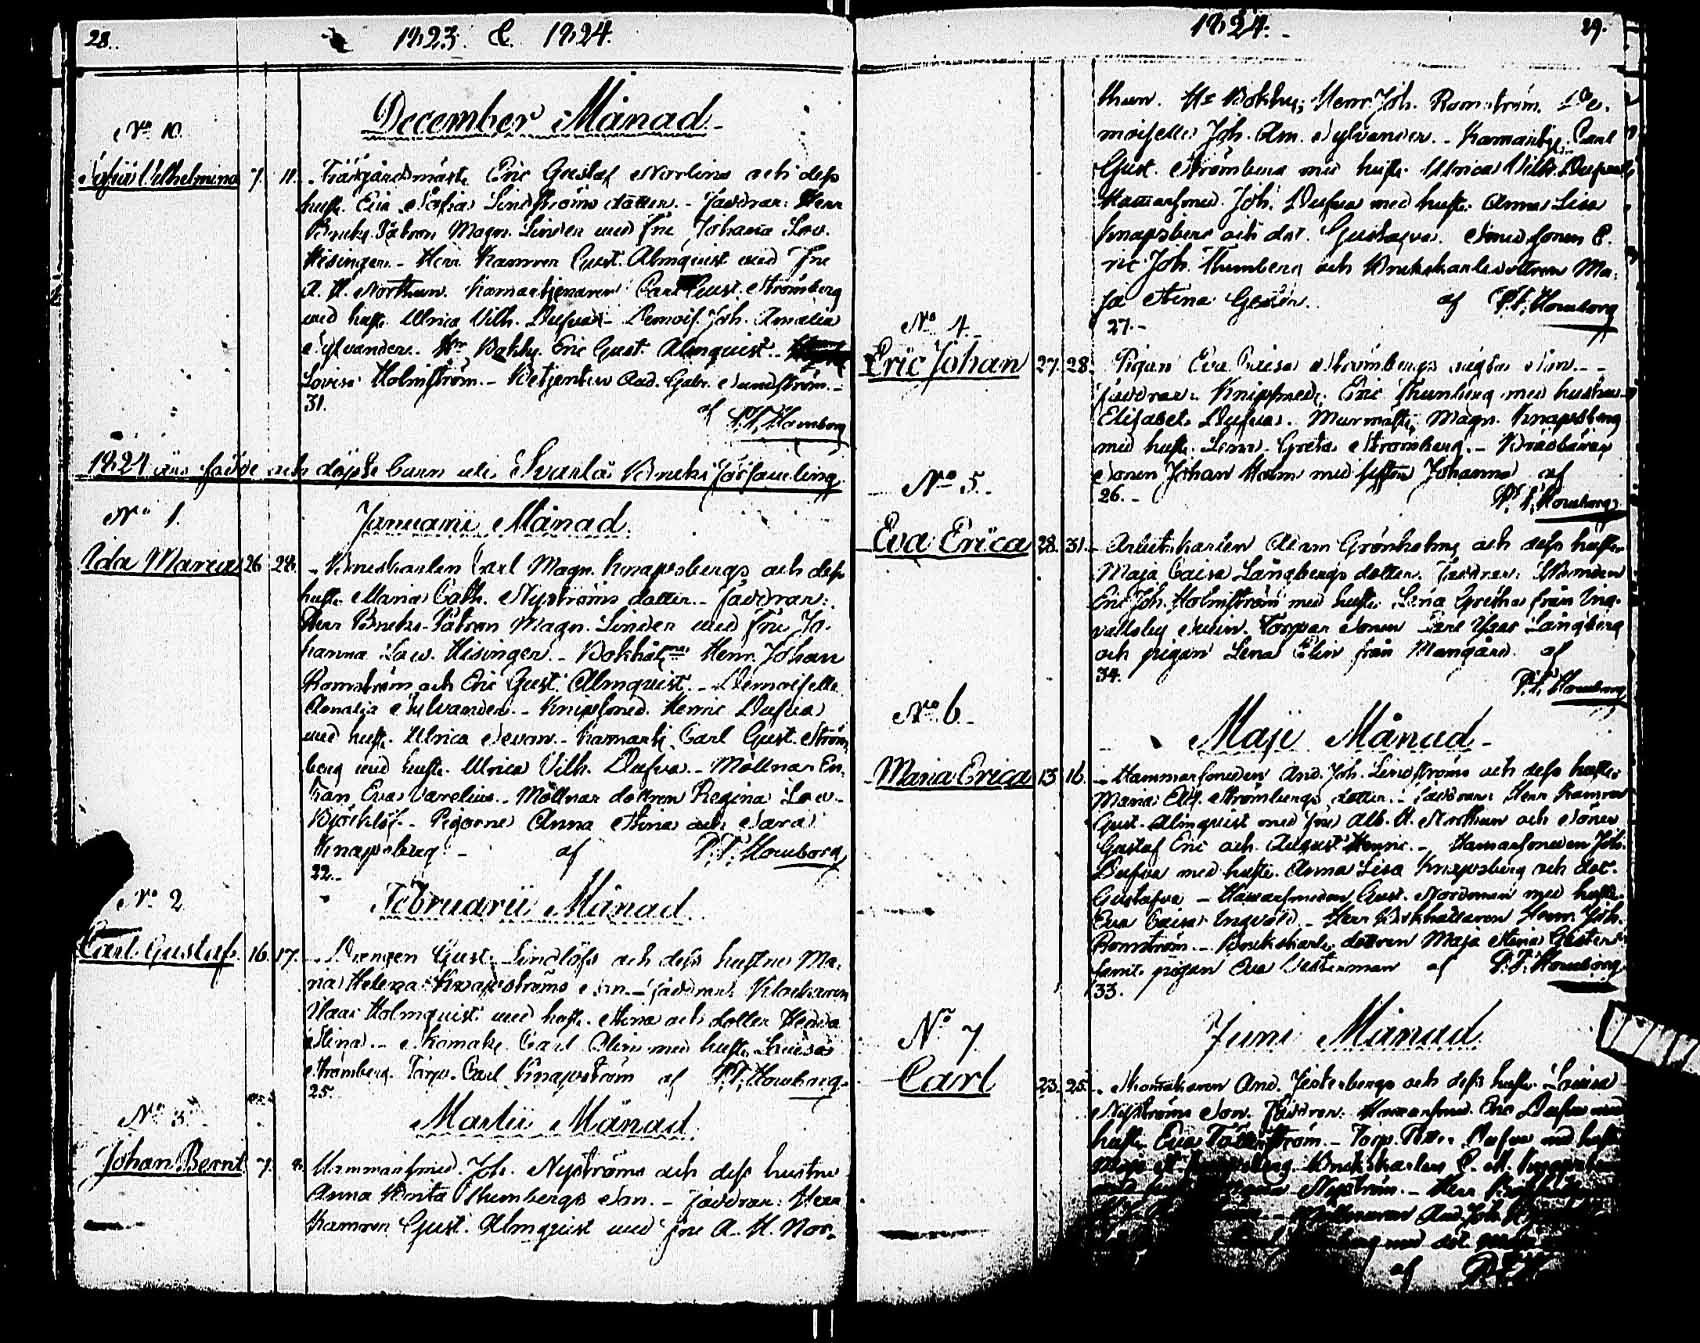 28.
1823. & 1824.
December Månad
No 10.
Sofia Vilhelmina 7. 11. Trädgårdsmäst. Eric Gustaf Norlins och dess
hustr. Eva Sofia Lindströms dotter. - Faddrar: Herr
Bruks Patron Magn. Linder med Fru Johanna Lov.
Hisinger. - Herr Kamrer Gust. Almquist med Fru
A. H. Northun. Kamartjenaren Carl Gust. Strömberg
med hust. Ulrica Vilh. Dufva - Demois. Joh. Amalia
Sylvander. Hr Bokh. Eric Gust. Almquist.
Lovisa Holmström. - Betjenten And. Gabr. Sundström. -
31.
af P. F. Homborg
1824 års födde och döpte barn uti Svartå Bruks Församling
No 1.
Januarii Månad.
Ida Maria 26 28. - Brukskarlen Carl Magn. Knapsbergs och dess
hustr. Maria Cath. Nyströms dotter. - Faddrar:
Herr Bruks-Patron Magn. Linder med Fru Jo-
hanna Lov. Hisinger. - Bokhåll. Henr. Johan
Romström och Eric Gust. Almquist. - Demoiselle
Amalia Sylvander. - Knipsmed. Henric Dufva
med hust. Ulrica Sevon. - Kamartj. Carl Gust. Ström-
berg med hust. Ulrica Vilh. Dufva. - Möllnar En-
kan Eva Varelius. - Möllnar dottren Regina Lov.
Björklöf. - Pigorne Anna Stina och Sara
Knapsberg. - af P. F. Homborg
22. -
No 2
Februarii Månad
Carl Gustaf. 16. 17. Drengen Gust. Lindlöfs och dess hustrus Ma-
ria Helena Knapströms son. - Faddrar: Klockaren
Isaac Holmquist med hust. Stina och dotter Hedda
Stina. - Skomak. Carl Olin med hust. Lovisa
Strömberg. Torp. Carl Knapström af P. F. Homborg.
25.
No 3
Martii Månad.
Johan Bernt 7. 8. Hammarsmed. Joh. Nyströms och dess hustru
Anna Brita Thumbergs son. - Faddrar: Herr
Kamrer Gust. Almquist med Fru A. H. Nor-
1824. -
29.
thun. Hr Bokh. Henr. Joh. Romström. De-
moiselle Joh. Am. Sylvander. - Kamartj. Carl
Gust. Strömberg med hust. Ulrica Vilh. Dufva
Hamarsmed. Joh. Dufva med hust. Anna Lisa
Knapsberg och dot. Gustafva. Smedsonen E-
ric Joh. Thumberg och Brukskarlsdottren Ma-
ja Stina Gestér. af P. F. Homborg
27. -
No 4.
Eric Johan 27. 28. Pigan Eva Caisa Strömbergs oägta son. -
Faddrar: Knipsmed. Eric Thunberg med hustru
Elisabet Dufva. Murmäst. Magn. Knapsberg
med hust. Lena Greta Stromberg. -
sonen Johan Holm med Johanna af
26. - P. F. Homborg
No 5.
Eva Erica 28. 31. Arbetskarlen Adam Grönholms och dess hustr.
Maja Caisa Långbergs dotter. Faddrar: Bonden
Eric Joh. Holmström med hust. Lena Gretha från Ing-
vallsby. Torpar sonen Carl Isac Långberg
och pigan Lena Elin från Mangård. af
34. P. F. Homborg
No 6.
Maji Månad -
Maria Erica 13 16. - Hammarsmeden And. Joh. Lindströms och dess hustr.
Maria Elis. Strömbergs dotter. - Faddrar: Herr Kamrer
Gust. Almquist med Fru Alb. H. Northun och söner
Gustaf Eric och August Henric. - Hamarsmeden Joh.
Dufva med hust. Anna Lisa Knapsberg och dot.
Gustafva - Hamarsmeden Gust. Nordman med hust.
Eva Caisa Ingvald. - Herr Bokhållaren Henr. Joh.
Romström. - Brukskarls dottren Maja Stina Gester
samt pigan Eva Vesterman af P. F. Homborg
33.
No 7
Juni Månad
Carl 23. 25. Skomakaren And. Zesterbergs och dess hust. Lovisa
Nyströms son. Faddrar: Hamarsmed. Eric Dufva med
hust. Eva - Torp. Petter Dufva med hust.
Maja Brukskarlen C. M. Knapsberg
Nyström. - Herr
And. Joh.
med dot.
af P. F. H